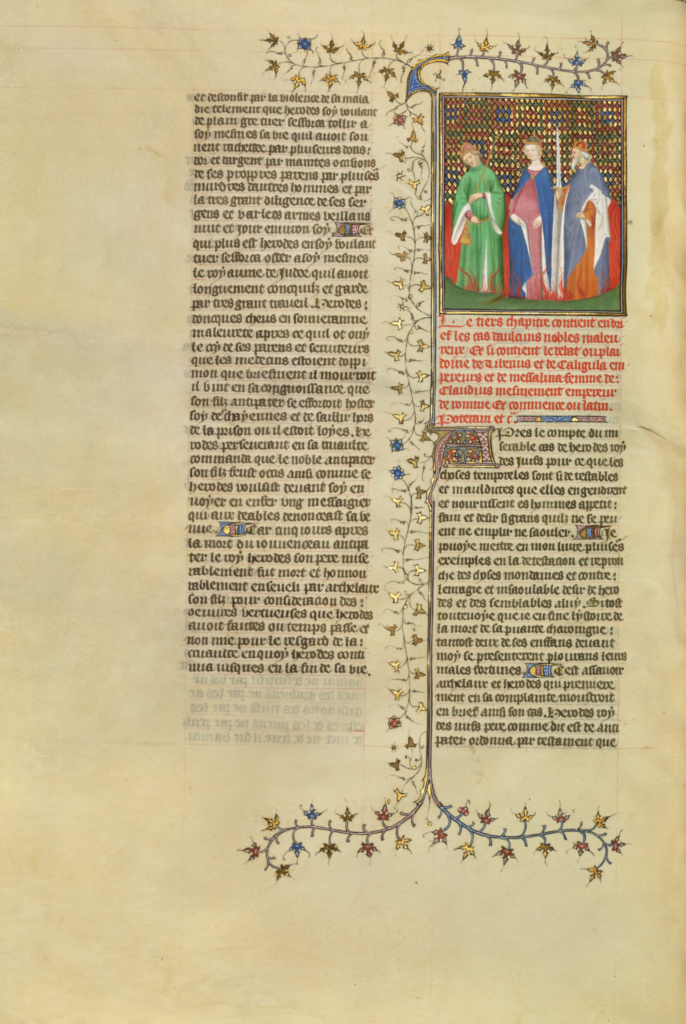 et desconfit par la violence de sa mala
die telement que herodes soy voulant
de plain gre tuer sefforca tollir a
soy mesmes sa vie qui avoit sou
uent rachettee par pluiseurs dons:
dor et dargent par maintes occisions
de ses propres parens par pluises
murdres dautres hommes et par
la tres grant diligence de ses ser
gens et varles armes veillans
nuit et jour environ soy. Et
qui plus est herodes en soy voulant
tuer sefforca oster a soy mesmes
le royaume de Judee quil avoit
longuement concquis et garde
par tres grant travail. Herodes:
doncques cheus en souveraine
maleurete apres ce quil ot ouy
le cry de ses parens et serviteurs
que les medecins estoient doppi
mon que briefment il mourroit
il vint en sa congnoissance que
son filz antipater se efforcoit hoster
soy de chayennes et de saillir hors
de la prison ou il estoit loyes. He
rodes perseverant en sa cruaulte
commanda que le noble antipater
son filz feust occis ainsi comme se
herodes voulsist devant soy en
voyer en enfer ung messaigier
qui aux deables denonceast sa ve
nue. Car cinq jours apres
la mort du jouvenceau antipa
ter le roy herodes son pere mise
rablement fut mort et honnou
rablement enseveli par archelaus
son filz pour consideracion des:
oeuvres vertueuses que herodes
avoit faictes ou temps passe et
non mie pour le resgard de la:
cruaulte en quoy herodes conti
nua jusques en la fin de sa vie.
Le tiers chapitre contient en bri
ef les cas daulcuns nobles maleu
reux Et si contient le debat ou plai
doirie de Tiberius et de Caligula em
pereurs et de messalina femme de:
Claudius mesmement empereur
de romme Et commence ou latin.
Poteram et cͣ
Apres le compte du mi
serable cas de herodes roy
des juifs pour ce que les
choses temporeles sont si detestables
et mauldictes que elles engendrent
et nourrissent es hommes appetit:
faim et desir si grans quilz ne se peu
ent ne emplir ne saouler. Je
pouoye mettre en mon livre pluises
exemples en la detestacion et reprou
che des choses mondaines et contre:
lenragie et insaoulable desir de hero
des et des semblables a luy. Si tost
toutevoye que je eu fine lystoire de
la mort de sa puante charoingne:
tantost deux de ses enfans devant
moy se presenterent plourans leurs
males fortunes. Cest assavoir
archelaus et herodes qui premiere
ment en sa complainte moustroit
en brief ainsi son cas. Herodes roy
des juifs pere comme dit est de anti
pater ordonna par testament que